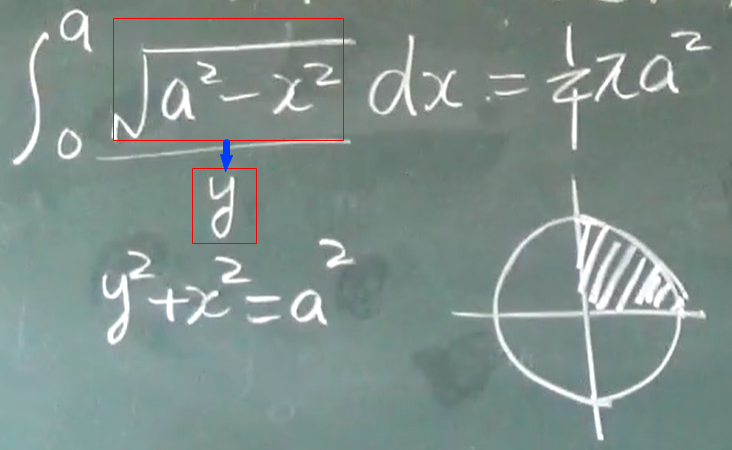 ∫₀ᵃ √(a²-x²) dx = 1/4 πa²
y
y²+x²=a²